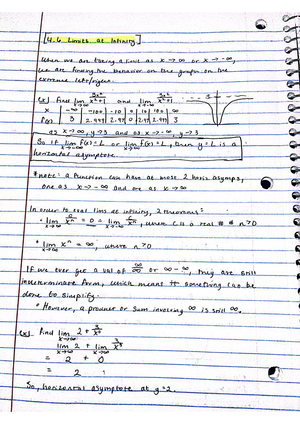 4.6 Limits at Infinity
When we are taking a limit as x → ∞ or x → -∞,
we are finding the behavior on the graph on the
extreme left/right.
ex] Find lim x→∞ 3x²/x²+1 and lim x→-∞ 3x²/x²+1
x | -∞ | -100 | -10 | 0 | 10 | 100 | ∞
f(x) 3 | 2.999 | 2.97 | 0 | 2.97 | 2.999 | 3
as x → ∞, y → 3 and as x → -∞, y → 3
So if lim x→∞ f(x) = L or lim x→-∞ f(x) = L, then y = L is a
horizontal asymptote.
*note: a function can have at most 2 horiz asymps,
one as x → -∞ and one as x → ∞
In order to eval lims at infinity, 2 theorems:
where C is a real # & n>0
• lim x→∞ xⁿ = ∞, where n>0
If we ever get a val of ∞/∞ or ∞ - ∞, they are still
indeterminate form, which means something can be
done to simplify.
• However, a product or sum involving ∞ is still ∞.
ex] Find lim x→∞ 2 +
lim x→∞ 2 + lim x→∞
= 2 + 0
= 2
So, horizontal asymptote at y = 2